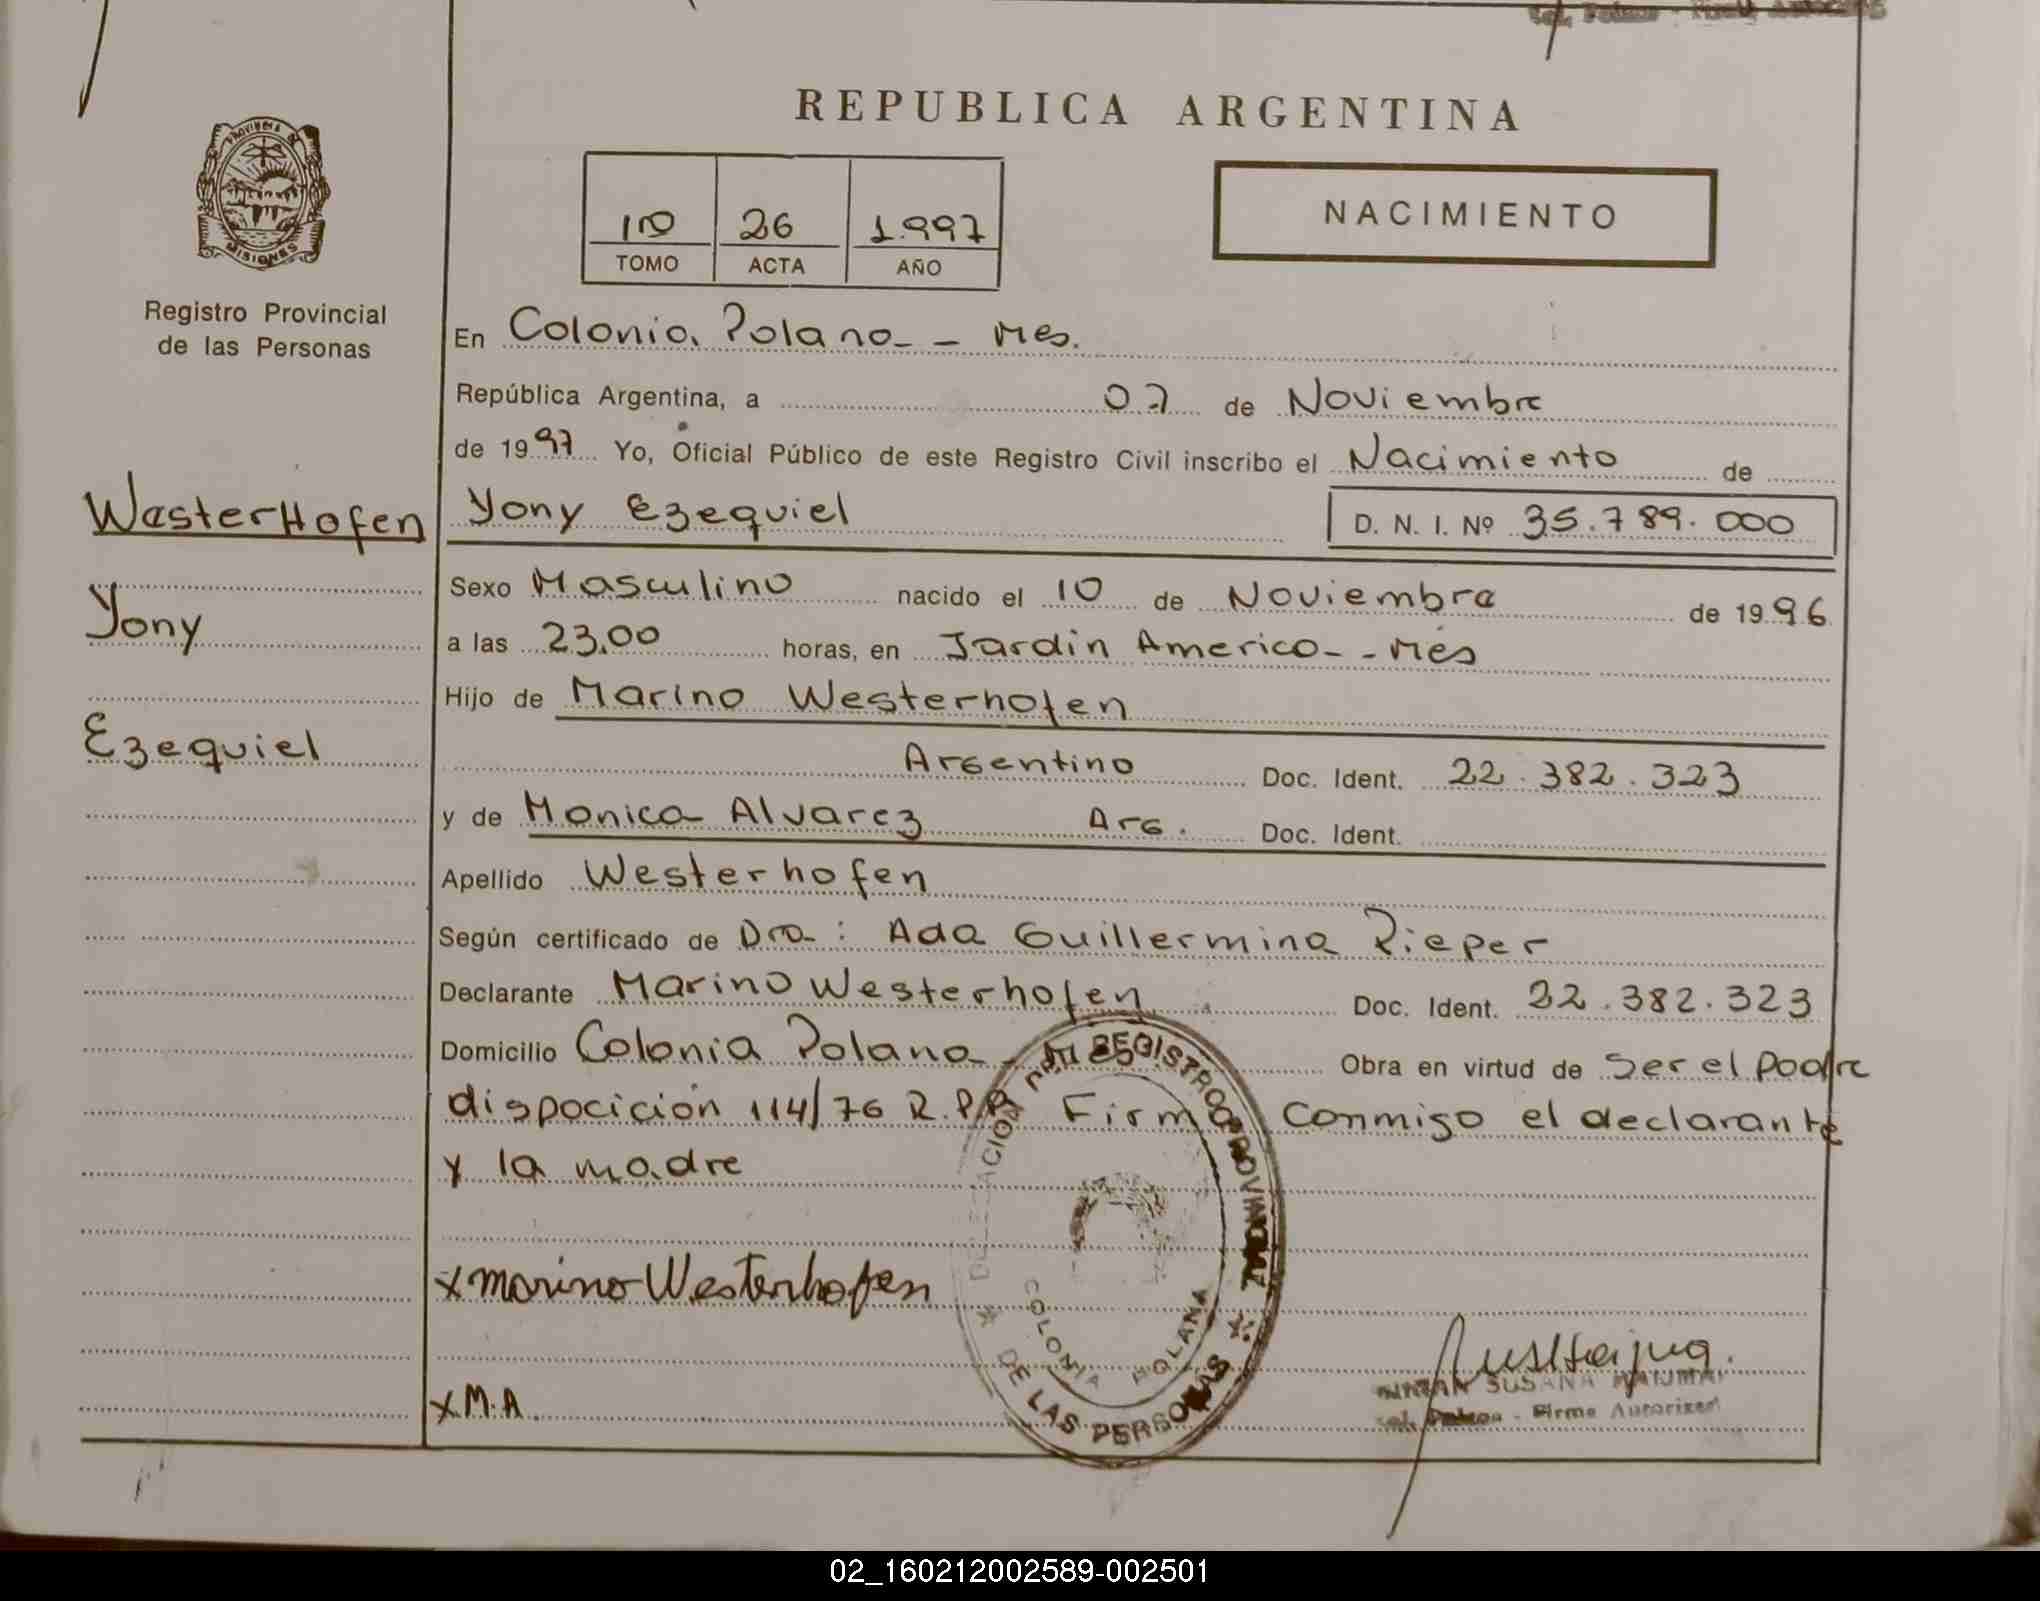 REPUBLICA ARGENTINA
PROVINCIA DE MISIONES
Registro Provincial
de las Personas
26 1.997
TOMO ACTA AÑO
NACIMIENTO
En Colonia Polana - Mes.
República Argentina, a 07 de Noviembre
de 1997 Yo, Oficial Público de este Registro Civil inscribo el Nacimiento de
WesterHofen Yony Ezequiel D. N. I. Nº 35.789.000
Yony
Ezequiel
Sexo Masculino nacido el 10 de Noviembre de 1996
a las 23,00 horas, en Jardin America - Mes
Hijo de Marino Westerhofen
Argentino Doc. Ident. 22.382.323
y de Monica Alvarez Arg. Doc. Ident.
Apellido Westerhofen
Según certificado de Dra: Ada Guillermina Pieper
Declarante Marino Westerhofen Doc. Ident. 22.382.323
Domicilio Colonia Polana - Mes Obra en virtud de Ser el padre
disposición 114/76 R.P.P. Firma Conmigo el declarante
y la madre
x Marino Westerhofen
x M.A.
DELEGACION DEL REGISTRO PROVINCIAL
DE LAS PERSONAS
COLONIA POLANA
SUSANA
Firma Autorizad
02_160212002589-002501